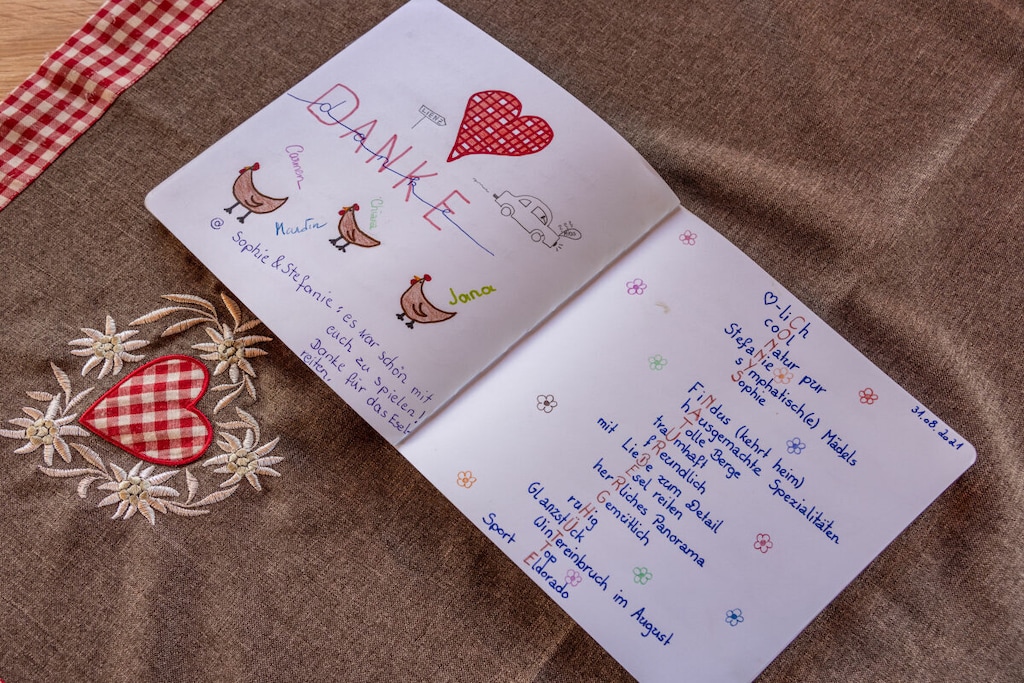 DANKE
danke
LIENZ
Carmen
Martin
Chiara
Jana
@ Sophie & Stefanie: es war schön mit
euch zu spielen!
Danke für das Esel
reiten.
31.08.2021
♡-liCh
coOl
Natur pur
StefaNie
sYmphatisch(e) Mädels
Sophie
FiNdus (kehrt heim)
hAusgemachte Spezialitäten
Tolle Berge
traUmhaft
fReundlich
mit LieBe zum Detail
Esel reiten
heRrliches Panorama
Gemütlich
ruHig
GlanzstÜck
WinTereinbruch im August
Top
Sport Eldorado